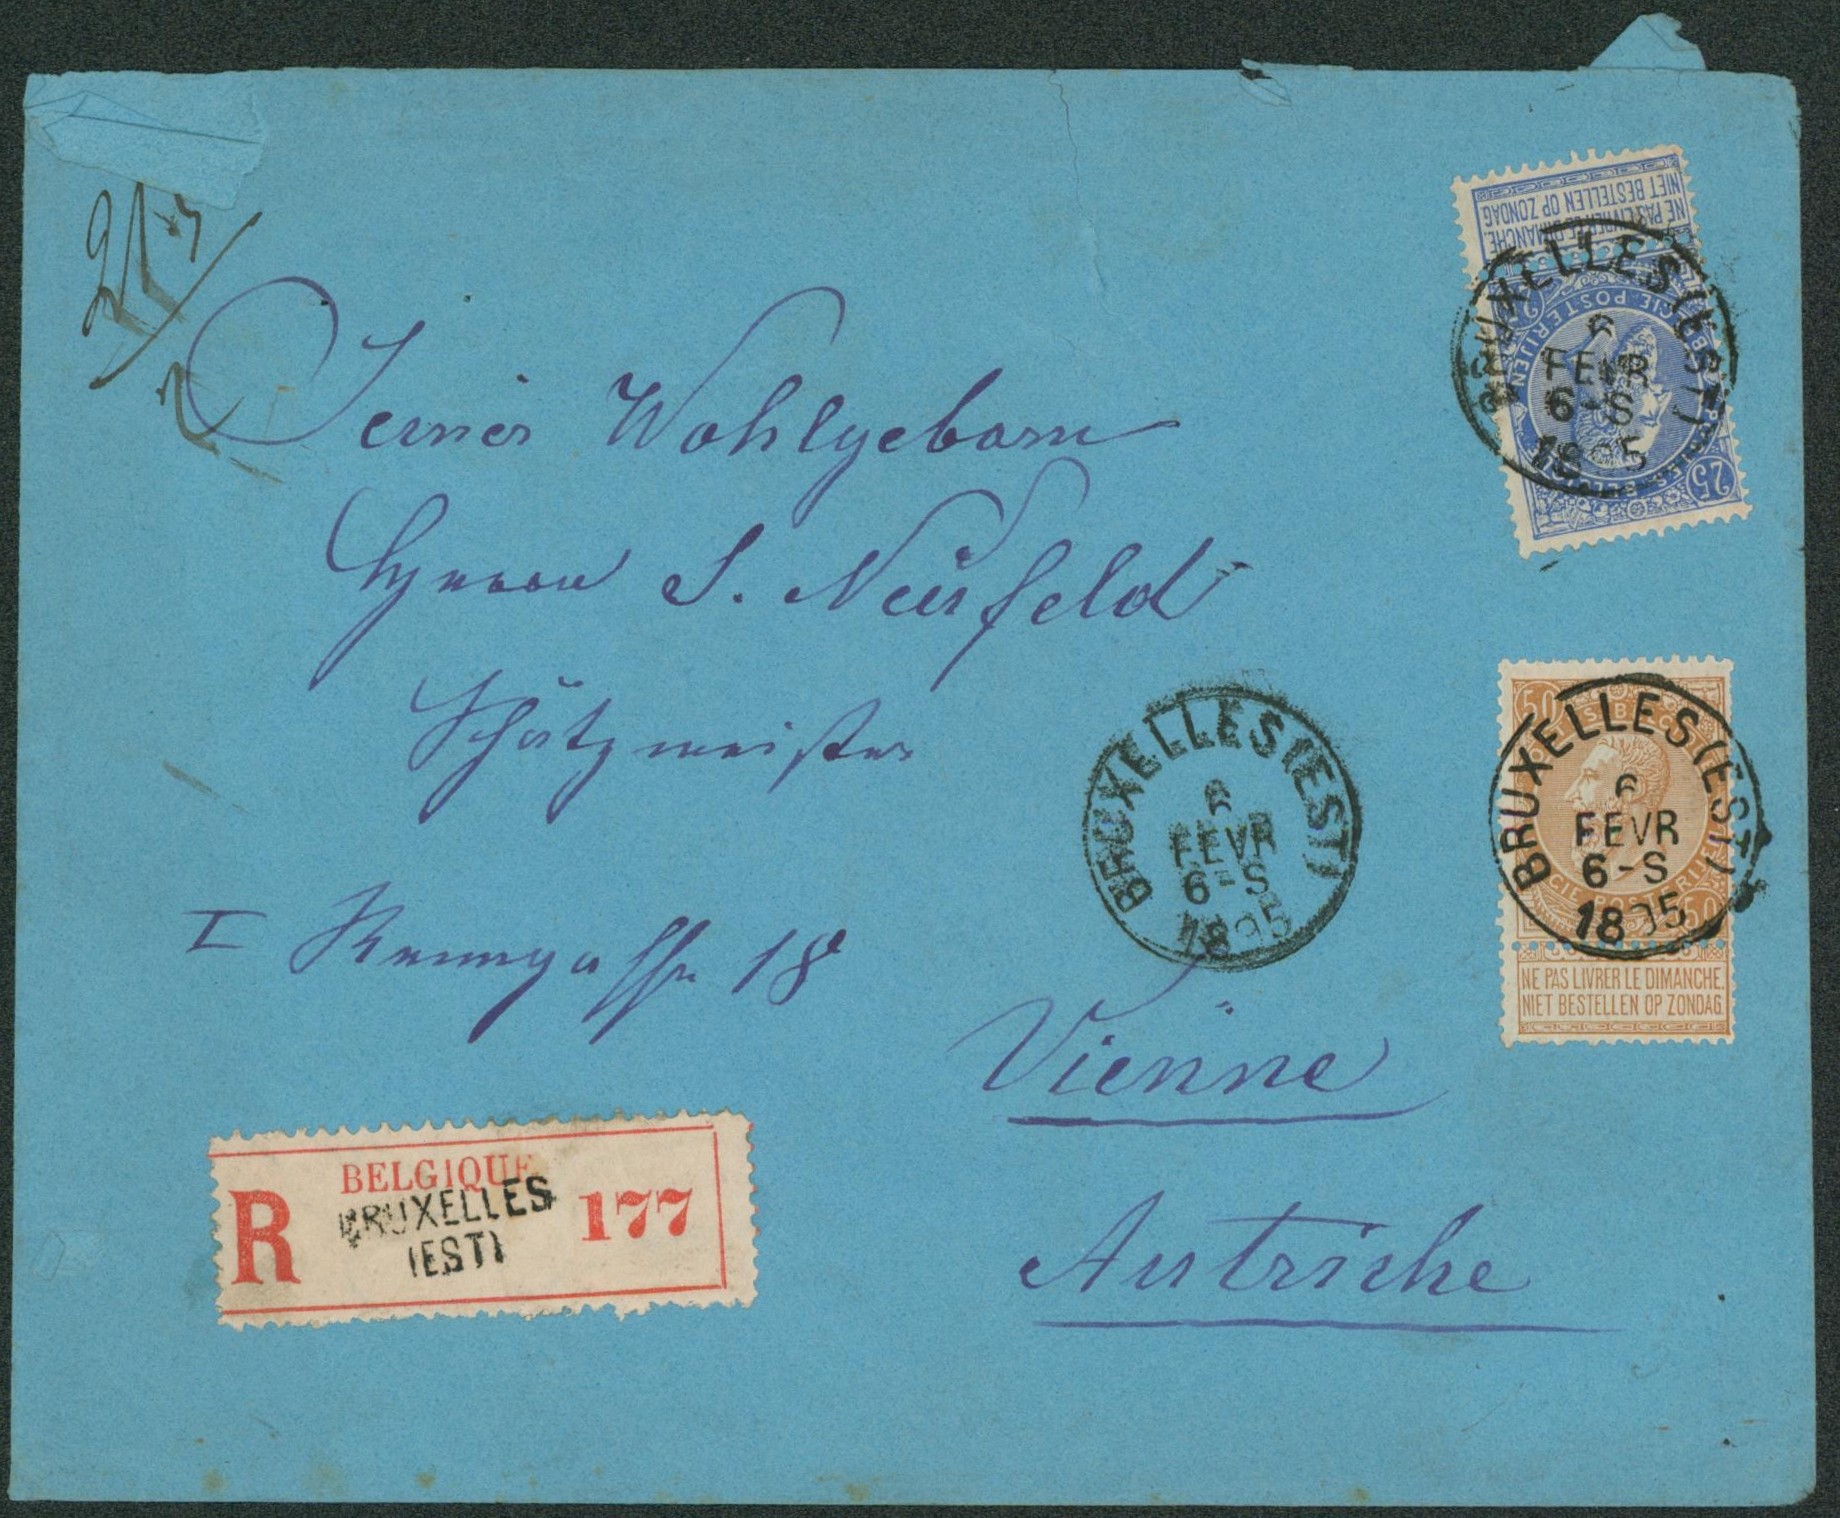 Seiner Wohlgeborn
Herrn S. Neufeld
Schätzmeister
I Renngasse 18
Vienne
Autriche
R
BELGIQUE
BRUXELLES
(EST)
177
NIET BESTELLEN OP ZONDAG
NE PAS LIVRER LE DIMANCHE.
25
BRUXELLES (EST)
6
FEVR
6-S
1895
BRUXELLES (EST)
6
FEVR
6-S
1895
50
BRUXELLES (EST)
6
FEVR
6-S
1895
50
NE PAS LIVRER LE DIMANCHE,
NIET BESTELLEN OP ZONDAG.